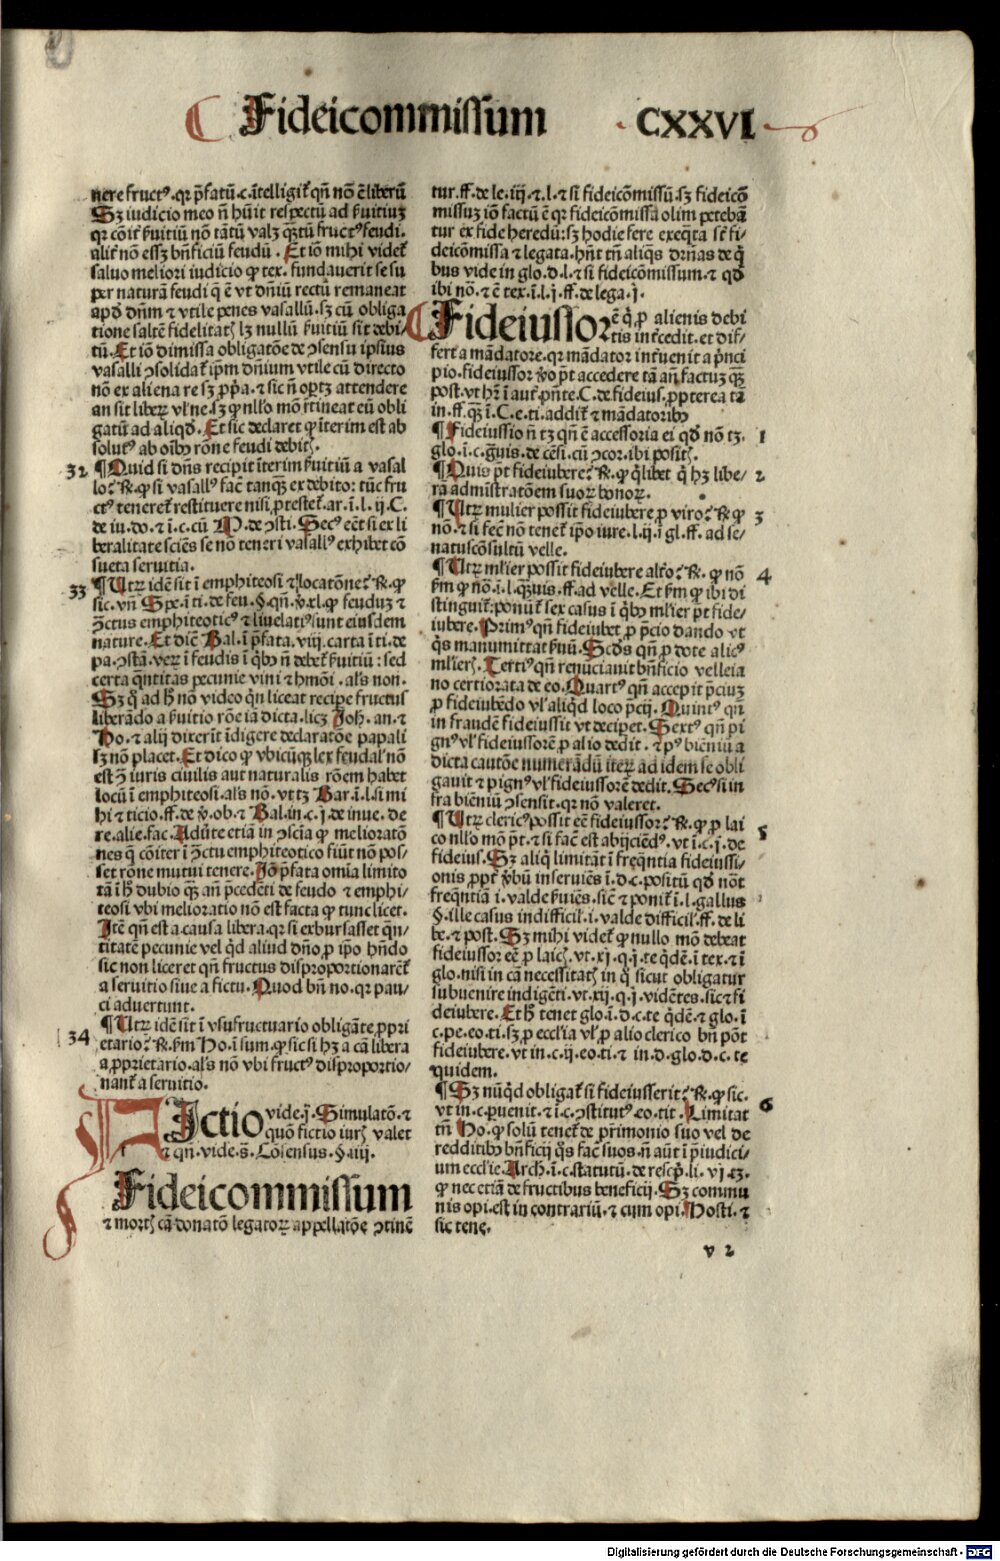 Fideicommissum CXXVI
nere fructꝰ. qꝛ p̄fatū. c. ītelligit᷑ qn̄ nō ē liberū
Sꝫ iudicio meo n̄ hūit respectū ad ẜuitiuꝫ
qꝛ cōit᷑ ẜuitiū nō tātū valꝫ qꝫtū fructꝰ feudi.
alit᷑ nō essꝫ bn̄ficiū feudū. Et iō mihi videt᷑
saluo meliori iudicio ꝙ tex. fundauerit se su
per naturā feudi q̄ ē vt dn̄iū rectū remaneat
apd̄ dn̄m ⁊ vtile penes vasallū. sꝫ cū obliga
tione saltē fidelitatꝭ lꝫ nullū ẜuitiū sit debi⸗
tū. Et iō dimissa obligatōe de ↄsensu ipsius
vasalli ↄsolidat᷑ ip̄m dn̄ium vtile cū directo
nō ex aliena re sꝫ ꝓp̄a. ⁊ sic n̄ oꝑtꝫ attendere
an sit liberꝝ vl' ne sꝫ ꝙ nll'o mō r̄tineat eū obli
gatū ad aliqd̄. Et sic declaret ꝙ īterim est ab
solutꝰ ab oībꝫ rōne feudi debitꝭ.
32 ¶ Quid si dn̄s recipit īterim ẜuitiū a vasal
lo: ℞. ꝙ si vasallꝰ fac̄ tanqꝫ ex debito: tūc fru
ctꝰ teneret᷑ restituere nisi ꝓtestet᷑. ar. ī. l. ij. C.
de iu. do. ⁊ ī. c. cū M. de ↄsti. Secꝰ eēt si ex li
beralitate sciēs se nō teneri vasallꝰ exhibet cō
sueta seruitia.
33 ¶ Utꝝ idē sit ī emphiteosi ⁊ locatōne: ℞. ꝙ
sic. vn̄ Spe. ī ti. de feu. §. qn̄. ꝟ. xl. ꝙ feuduꝫ ⁊
ↄ̄ctus emphiteoticꝰ ⁊ liuelatiꝰ sunt eiusdem
nature. Et dic̄ Bal. ī p̄fata. viij. carta ī ti. de
pa. ↄstā. veꝝ ī feudis ī qͥbꝫ n̄ debet᷑ ẜuitiū: sed
certa qn̄titas pecunie vini ⁊ hmōi. al's non.
Sꝫ q̄ ad h̄ nō video qn̄ liceat recipe fructus
liberādo a ẜuitio rōe iā dicta. licꝫ Joh. an. ⁊
Ho. ⁊ alij dixerīt īdigere declaratōe papali
sꝫ nō placet. Et dico ꝙ vbicūqꝫ lex feudal' nō
est ↄ̄ iuris ciuilis aut naturalis rōem habet
locū ī emphiteosi. al's nō. vt tꝫ Bar. ī. l. si mi
hi ⁊ ticio. ff. de ꝟ. ob. ⁊ Bal. in. c. j. de inue. de
re. alie. fac. Adūte etiā in ↄscīa ꝙ melioratō
nes q̄ cōiter ī ↄ̄ctu emphiteotico fiūt nō pos⸗
set rōne mutui tenere. Jō p̄fata omīa limito
tā ī h̄ dubio qꝫ añ p̄cedēti de feudo ⁊ emphi⸗
teosi vbi melioratio nō est facta ꝙ tunc licet.
Jtē qn̄ est a causa libera. qꝛ si exbursasset qn̄⸗
titatē pecunie vel qd̄ aliud dn̄o ꝓ ip̄o hn̄do
sic non liceret qn̄ fructus disproportionaret᷑
a seruitio siue a fictu. Quod bn̄ no. qꝛ pau⸗
ci aduertunt.
34 ¶ Utꝝ idē sit ī vsufructuario obligāte ꝓpri
etario: ℞. ẜm Ho. ī sum. ꝙ sic si hꝫ a cā libera
a ꝓprietario. al's nō vbi fructꝰ disproportio⸗
nant᷑ a seruitio.
Fictio vide. j̄. Simulatō. ⁊
quō fictio iurꝭ valet
⁊ qn̄. vide. s̄. Cōsensus. §. iiij.
Fideicommissum
⁊ mortꝭ cā donatō legatoꝝ appellatōe ↄtinē
tur. ff. de le. iij. ⁊. l. ⁊ si fideicōmissū. sꝫ fideicō
missuꝫ iō factū ē qꝛ fideicōmissa olim petebā
tur ex fide heredū: sꝫ hodie fere exeq̄ta st̄ fi⸗
deicōmissa ⁊ legata. hn̄t tn̄ aliqͣs drn̄as de q̄
bus vide in glo. d. l. ⁊ si fideicōmissum. ⁊ qd̄
ibi nō. ⁊ ē tex. ī. l. j. ff. de lega. j.
Fideiussor ē q̇ ꝓ alienis debi
tis int᷑cedit. et dif⸗
fert a mādatore. qꝛ mādator int᷑uenit a p̄nci
pio. fideiussor ꝟo p̄t accedere tā añ factuꝫ qꝫ
post. vt hr̄ ī aut᷑. p̄n̄te. C. de fideius. ꝓpterea tā
in. ff. qꝫ ī. C. e. ti. addit᷑ ⁊ mādatoribꝫ
¶ Fideiussio n̄ tꝫ qn̄ ē accessoria ei qd̄ nō tꝫ. 1
glo. ī. c. gͣuis. de cēsi. cū ↄcor. ibi positꝭ.
¶ Quis p̄t fideiubere: ℞. ꝙ qͥlibet q̇ hꝫ libe⸗ 2
ra admīstratōem suoꝝ bonoꝝ.
¶ Utꝝ mulier possit fideiubere ꝓ viro: ℞ ꝙ 3
nō. ⁊ si fec̄ nō tenet᷑ ip̄o iure. l. ij. ī gl. ff. ad se⸗
natuscōsultū velle.
¶ Utꝝ ml'ier possit fideiubere alt᷑o: ℞. ꝙ nō 4
ẜm ꝙ nō. ī. l. qꝫuis. ff. ad velle. Et ẜm ꝙ ibi di
stinguit᷑: ponūt᷑ sex casus ī qͥbꝫ ml'ier p̄t fide⸗
iubere. Primꝰ qn̄ fideiubet ꝓ p̄cio dando vt
qͥs manumittat ẜuū. Scd̄s qn̄ ꝓ dote alicꝰ
ml'ierꝭ. Tertiꝰ qn̄ renūciauit bn̄ficio velleia
no certiorata de eo. Quartꝰ qn̄ accepit p̄ciuꝫ
ꝓ fideiubēdo vl' aliqd̄ loco p̄cij. Quintꝰ qn̄
in fraudē fideiussit vt decipet. Sextꝰ qn̄ pi
gnꝰ vl' fideiussorē ꝓ alio dedit. ⁊ pꝰ bieniū a
dicta cautōe numerādū iteꝝ ad idem se obli
gauit ⁊ pignꝰ vl' fideiussorē dedit. Secꝰ si in
fra bieniū ↄsensit. qꝛ nō valeret.
¶ Utꝝ clericꝰ possit eē fideiussor: ℞. ꝙ ꝓ lai 5
co nll'o mō p̄t. ⁊ si fac̄ est abijciēdꝰ. vt ī. c. j. de
fideius. Sꝫ aliqͥ limitāt ī freqn̄tia fideiussi⸗
onis ꝓpt᷑ ꝟbū inseruiēs ī. d. c. positū qd̄ nōt
freqn̄tiā ī. i. valde ẜuiēs. sic̄ ⁊ ponit᷑ ī. l. gallus
§. ille casus indifficil'. i. valde difficil'. ff. de li
be. ⁊ post. Sꝫ mihi videt᷑ ꝙ nullo mō debeat
fideiussor eē ꝓ laicꝭ. vt. xj. q. j. te qͥdē. ī tex. ⁊ ī
glo. nisi in cā necessitatꝭ in q̄ sicut obligatur
subuenire indigēti. vt. xij. q. j. vidētes. sic ⁊ fi
deiubere. Et h̄ tenet glo. ī. d. c. te qͥdē. ⁊ glo. ī
c. pe. eo. ti. sꝫ ꝓ eccl'ia vl' ꝓ alio clerico bn̄ pōt
fideiubere. vt in. c. ij. eo. ti. ⁊ in. d. glo. d. c. te
quidem.
¶ Sꝫ nūqd̄ obligat᷑ si fideiusserit: ℞. ꝙ sic. 6
vt in. c. ꝑuenit. ⁊ ī. c. ↄstitutꝰ. eo. tit. Limitat
tn̄ Ho. ꝙ solū tenet᷑ de pr̄imonio suo vel de
redditibꝫ bn̄ficij qͥs fac̄ suos. n̄ aūt ī p̄iudici⸗
um eccl'ie. Arch. ī. c. statutū. de rescp̄. li. vj.
ꝙ nec etiā de fructibus beneficij. Sꝫ commu
nis opi. est in contrariū. ⁊ cum opi. Hosti. ⁊
sic tene.
v 2
Digitalisierung gefördert durch die Deutsche Forschungsgemeinschaft - DFG